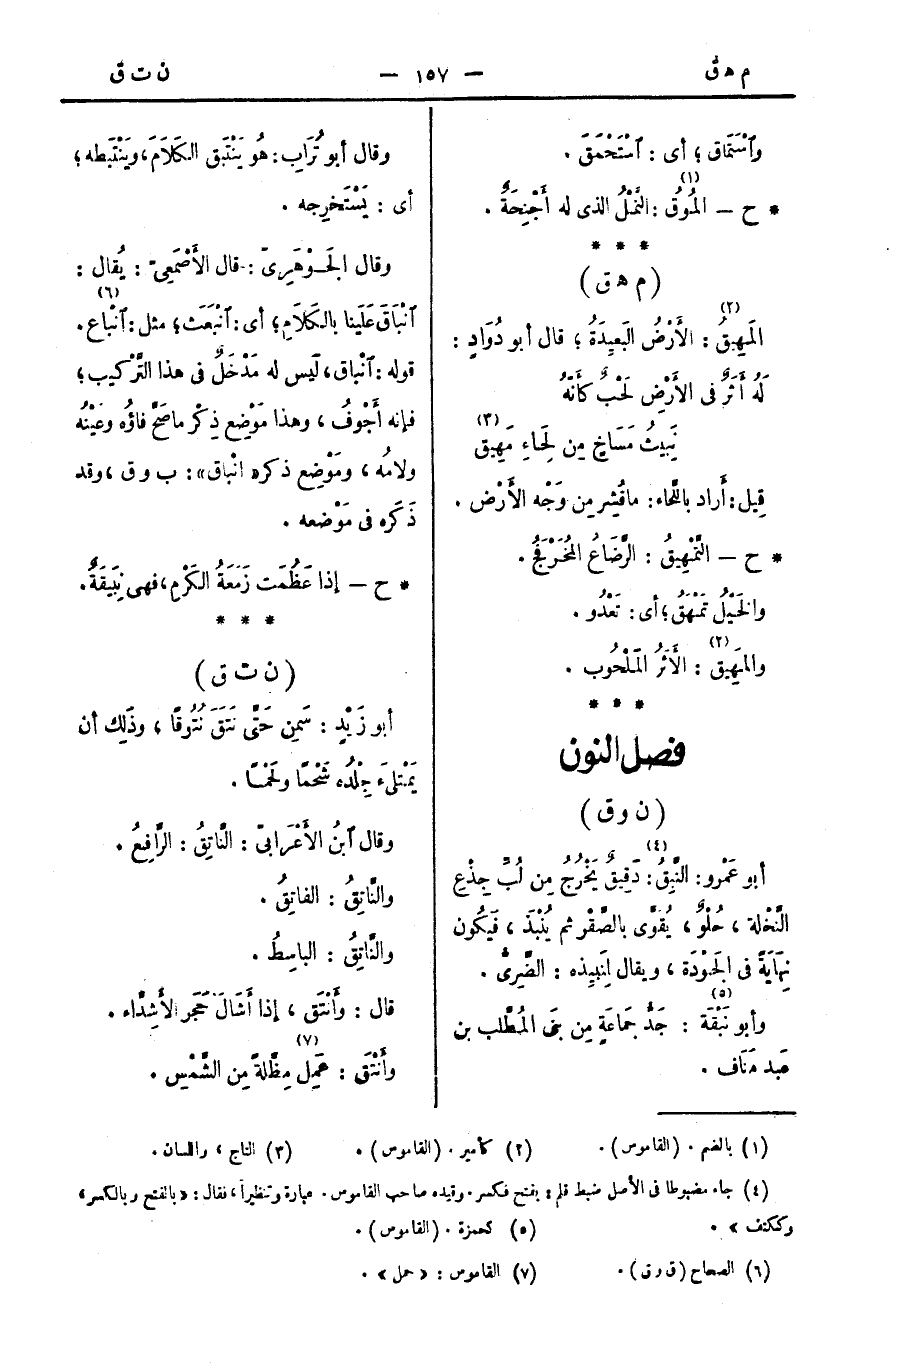 م ه ق — ١٥٧ — ن ت ق
وٱسْتَمَاق ؛ أى : ٱسْتَحْمَقَ .
* ح — المُوقُ (١) : النَّمْلُ الذى له أَجْنِحَةٌ .
* * *
( م ه ق )
المَهِيقُ (٢) : الأَرْضُ البَعِيدَةُ ؛ قال أبو دُوَادٍ :
لَهُ أَثَرٌ فى الأَرْضِ لَحْبٌ كأنّهُ
نَبِيثُ مَسَاخٍ مِن لِحَاءِ مَهِيقِ (٣)
قِيل : أَراد باللّحاء : ماقُشِر مِن وَجْه الأَرْض .
* ح — التَّمْهِيقُ : الرَّضَاعُ المُخَرْفَجُ .
والخَيْلُ تَمْهَقُ ؛ أى : تَعْدُو .
والمَهِيق (٢) : الأَثَرُ المَلْحُوب .
* * *
فصل النون
( ن و ق )
أبو عَمْرو : النَّبِقُ (٤) : دَقِيقٌ يَخْرُجُ مِن لُبِّ جِذْعِ
النَّخْلة ، حُلْوٌ ، يُقوَّى بالصَّقْر ثم يُنْبَذ ، فَيكُون
نِهَايَةً فى الجَوْدَة ، ويقال لِنَبِيذه : الضَّرِىُّ .
وأبو نَبْقَة (٥) : جَدُّ جَمَاعَةٍ مِن بَنِى المُطَّلب بن
عَبد مَنَاف .
وقال أبو تُرَاب : هُو يَنْتَبِق الكَلَامَ ، ويَنْتَبِطه ؛
أى : يَسْتَخرِجه .
وقال الجَوْهَرِىّ : قال الأَصْمَعِىّ : يُقال :
ٱنْبَاقَ عَلَينا بالكَلَامِ ؛ أى : ٱنْبَعَثَ ؛ مثل : ٱنْباع (٦) .
قوله : ٱنْباق ، لَيس له مَدْخَلٌ فى هذا التَّرْكيب ؛
فإنه أَجْوفُ ، وهذا مَوْضِع ذِكْر ماصَحَّ فاؤُه وعَيْنُه
ولامُه ، ومَوْضِع ذكره «انْباق» : ب و ق ، وقد
ذَكَره فى مَوْضعه .
* ح — إذا عَظُمَت زَمَعَةُ الكَرْمِ ، فهى نَبِيقَةٌ .
* * *
( ن ت ق )
أبو زَيْدٍ : سَمِن حَتَّى نَتَقَ نُتُوقًا ، وذَلِك أن
يَمْتلِىءَ جِلْدُه شَحْمًا ولَحْمًا .
وقال ٱبنُ الأَعْرَابىّ : النَّاتِقُ : الرَّافِعُ .
والنَّاتِقُ : الفاتِقُ .
والنَّاتِقُ : الباسِطُ .
قال : وأَنْتَق ، إذا أَشَالَ حَجَر الأَشِدَّاء .
وأَنْتَق : عَمِل (٧) مِظَّلةً مِن الشَّمْس .
(١) بالضم . (القاموس) . (٢) كأمير . (القاموس) . (٣) التاج ، واللسان .
(٤) جاء مضبوطا فى الأصل ضبط قلم : بفتح فكسر . وقيده صاحب القاموس . عبارة وتنظيراً ، فقال : «بالفتح وبالكسر ،
وككتف » . (٥) كحمزة . (القاموس) .
(٦) الصحاح (ق ر ق) . (٧) القاموس : « حمل » .